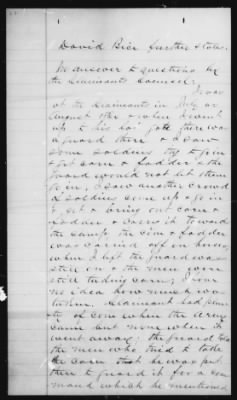 David Rice further states
In answer to questions by
the Claimants Counsel:
I was
at the Claimants in July or
August 1864 & when I went
up to his lot gate there was
a guard there & I saw
some soldiers try to go in
& get corn & fodder & the
guard would not let them
go in, I saw another crowd
of soldiers come up & go in
& get & bring out corn &
fodder & carry it toward
the camp the corn & fodder
was carried off on horses,
when I left the guard was
still on & the men were
still taking corn, I have
no idea how much was
taken. Claimant had plen-
ty of corn when the army
came but none when it
went away; the guard told
the men who tried to take
the corn that he was put
there to guard it for a com-
mand which he mentioned